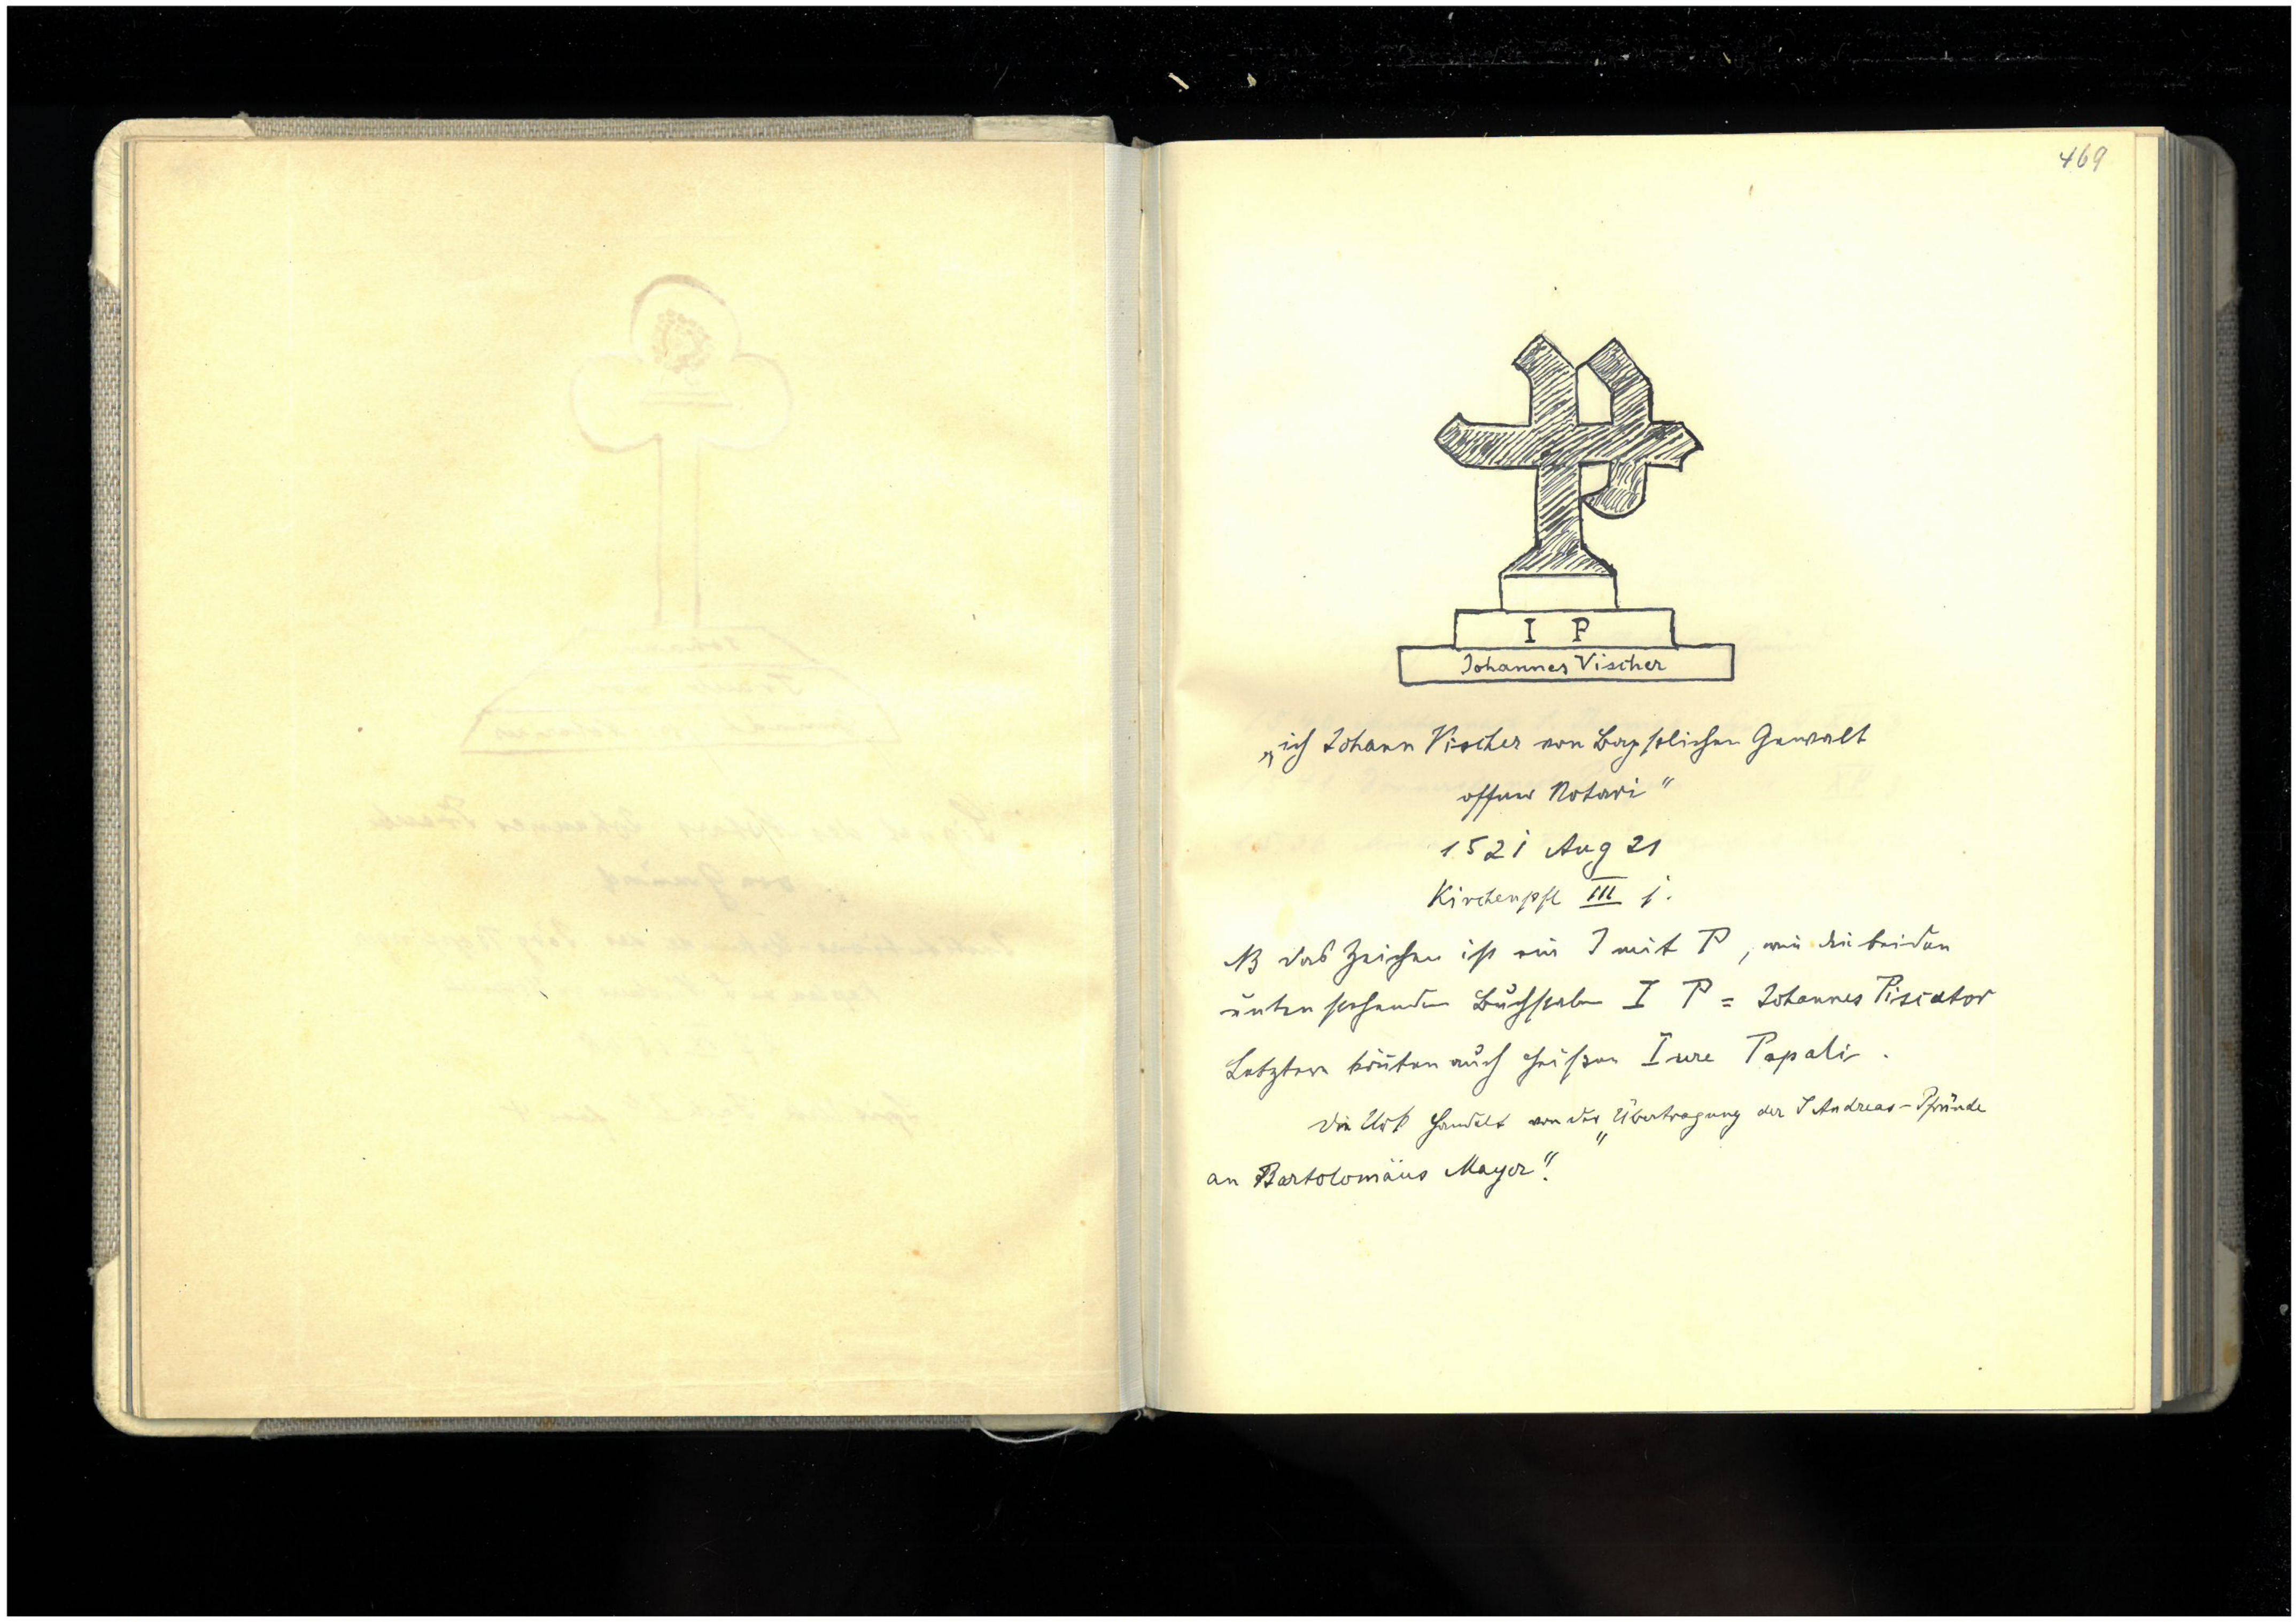 469
I P
Johannes Vischer
„ich Johann Vischer von Bäpstlichen Gewalt
offner Notari"
1521 Aug 21
Kirchenpfl III j.
NB das Zeichen ist ein I mit P, wie die beiden
unten stehenden Buchstaben I P = Johannes Piscator
Letztere könnten auch heißen Iure Papali.
Die Urk handelt von der „Übertragung der S Andreas-Pfründe
an Bartolomäus Mayer".